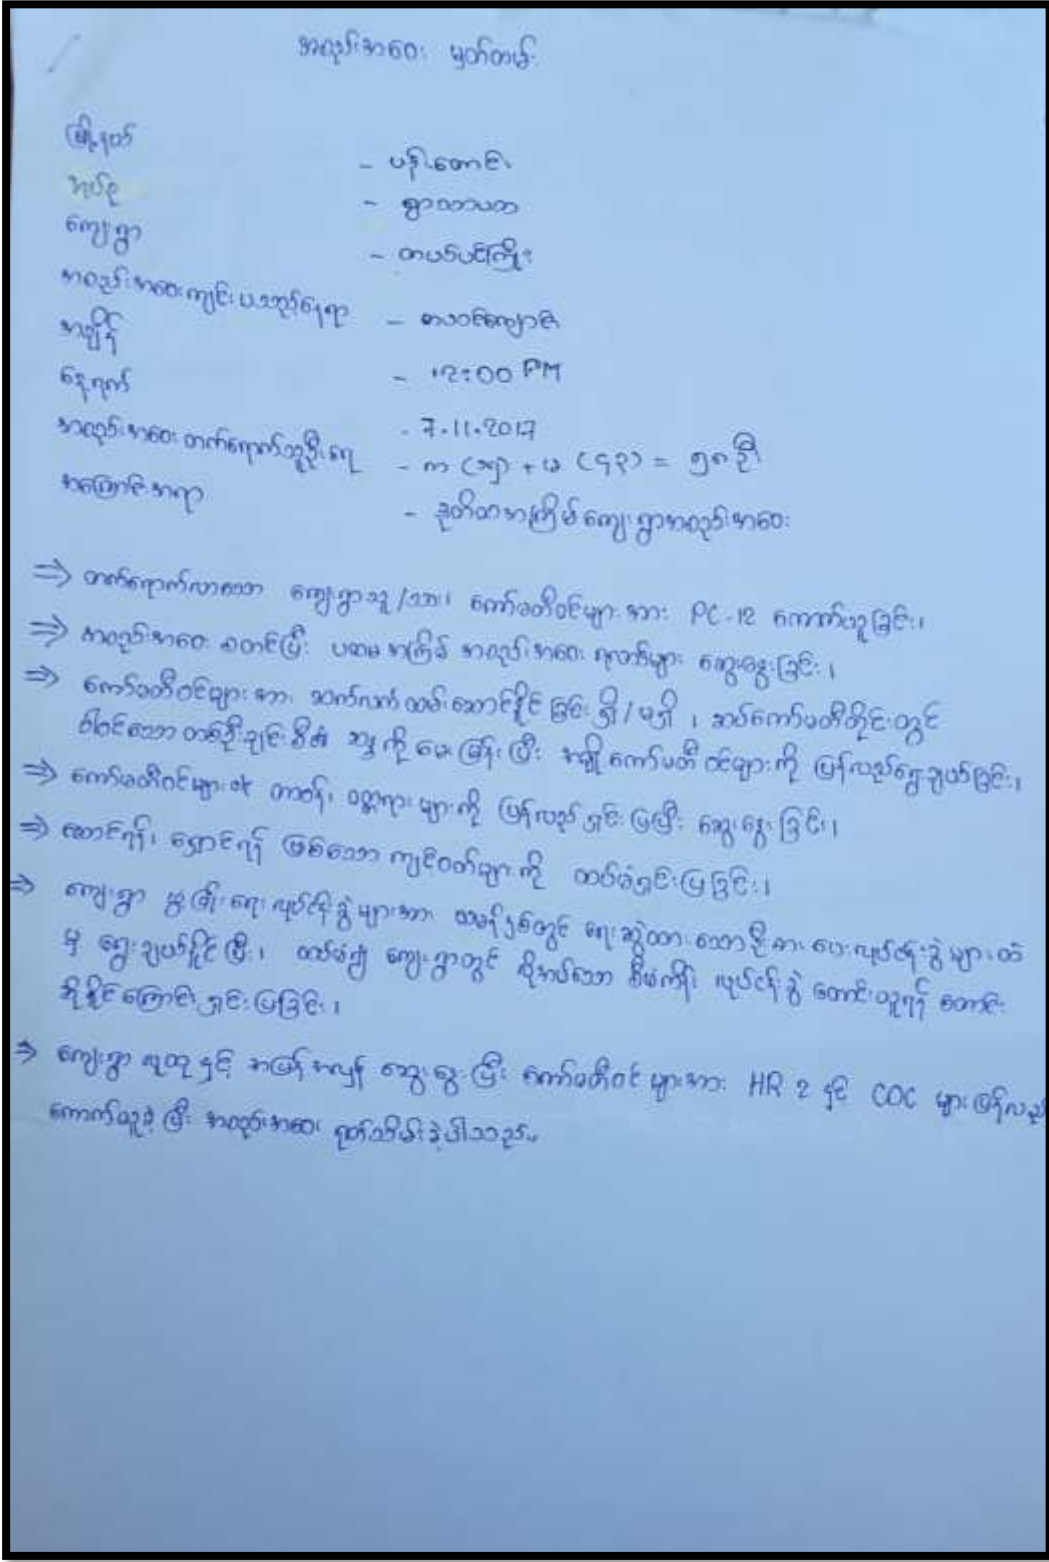 အစည်းအဝေး မှတ်တမ်း
မြို့နယ် - ပန်းတောင်း
အုပ်စု - ရွာသာယာ
ကျေးရွာ - တပင်ပင်ကြီး
အစည်းအဝေးကျင်းပသည့်နေရာ - စာသင်ကျောင်း
အချိန် - 12:00 PM
နေ့ရက် - 7.11.2017
အစည်းအဝေး တက်ရောက်သူဦးရေ - ကျ (၁၅) + မ (၄၃) = ၅၈ ဦး
အကြောင်းအရာ - ဒုတိယအကြိမ်ကျေးရွာအစည်းအဝေး
⇒ တက်ရောက်လာသော ကျေးရွာသူ/သား၊ ကော်မတီဝင်များအား PC-12 ကောက်ယူခြင်း၊
⇒ အစည်းအဝေး စတင်ပြီး ပထမအကြိမ် အစည်းအဝေး ရလာဒ်များ ဆွေးနွေးခြင်း၊
⇒ ကော်မတီဝင်များအား ဆက်လက်ထမ်းဆောင်နိုင်ခြင်း ရှိ/မရှိ ၊ ဆပ်ကော်မတီတိုင်းတွင်
ပါဝင်သော တစ်ဦးချင်းစီ၏ ဆန္ဒကို မေးမြန်းပြီး အချို့ကော်မတီဝင်များကို ပြန်လည်ရွေးချယ်ခြင်း၊
⇒ ကော်မတီဝင်များ၏ တာဝန်၊ ဝတ္တရားများကို ပြန်လည်ရှင်းပြပြီး ဆွေးနွေးခြင်း၊
⇒ ဆောင်ရန်၊ ရှောင်ရန် ဖြစ်သော ကျင့်ဝတ်များကို ထပ်မံရှင်းပြခြင်း၊
⇒ ကျေးရွာ ဖွံ့ဖြိုးရေး လုပ်ငန်းခွဲများအား ယမန်နှစ်တွင် ရေးဆွဲထားသော ဦးစားပေးလုပ်ငန်းခွဲများထဲ
မှ ရွေးချယ်နိုင်ပြီး၊ ထပ်မံ၍ ကျေးရွာတွင် လိုအပ်သော စီမံကိန်း လုပ်ငန်းခွဲ တောင်းယူရန် တောင်း
ဆိုနိုင်ကြောင်း ရှင်းပြခြင်း၊
⇒ ကျေးရွာ လူထုနှင့် အပြန်အလှန် ဆွေးနွေးပြီး ကော်မတီဝင်များအား HR 2 နှင့် COC များ ပြန်လည်
ကောက်ယူခဲ့ပြီး အစည်းအဝေး ရုတ်သိမ်းခဲ့ပါသည်။